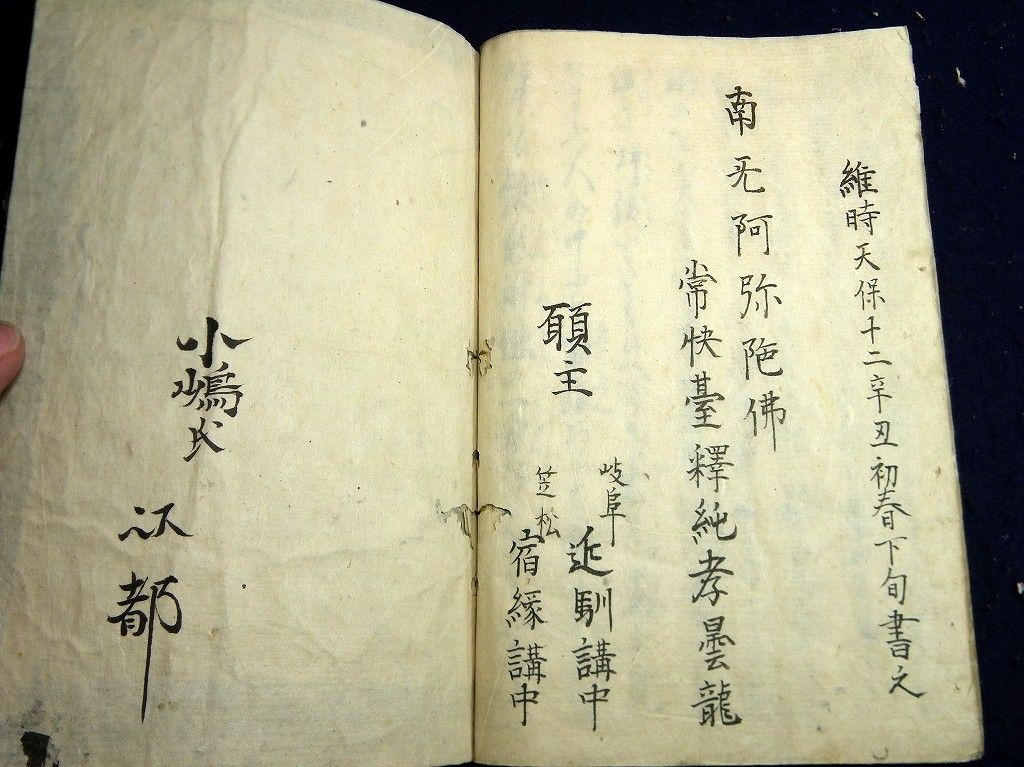 維時天保十二辛丑初春下旬書之
南无阿弥陀佛
常快臺釋純孝曇龍
願主
岐阜
近馴講中
笠松
宿縁講中
小嶋氏
以都